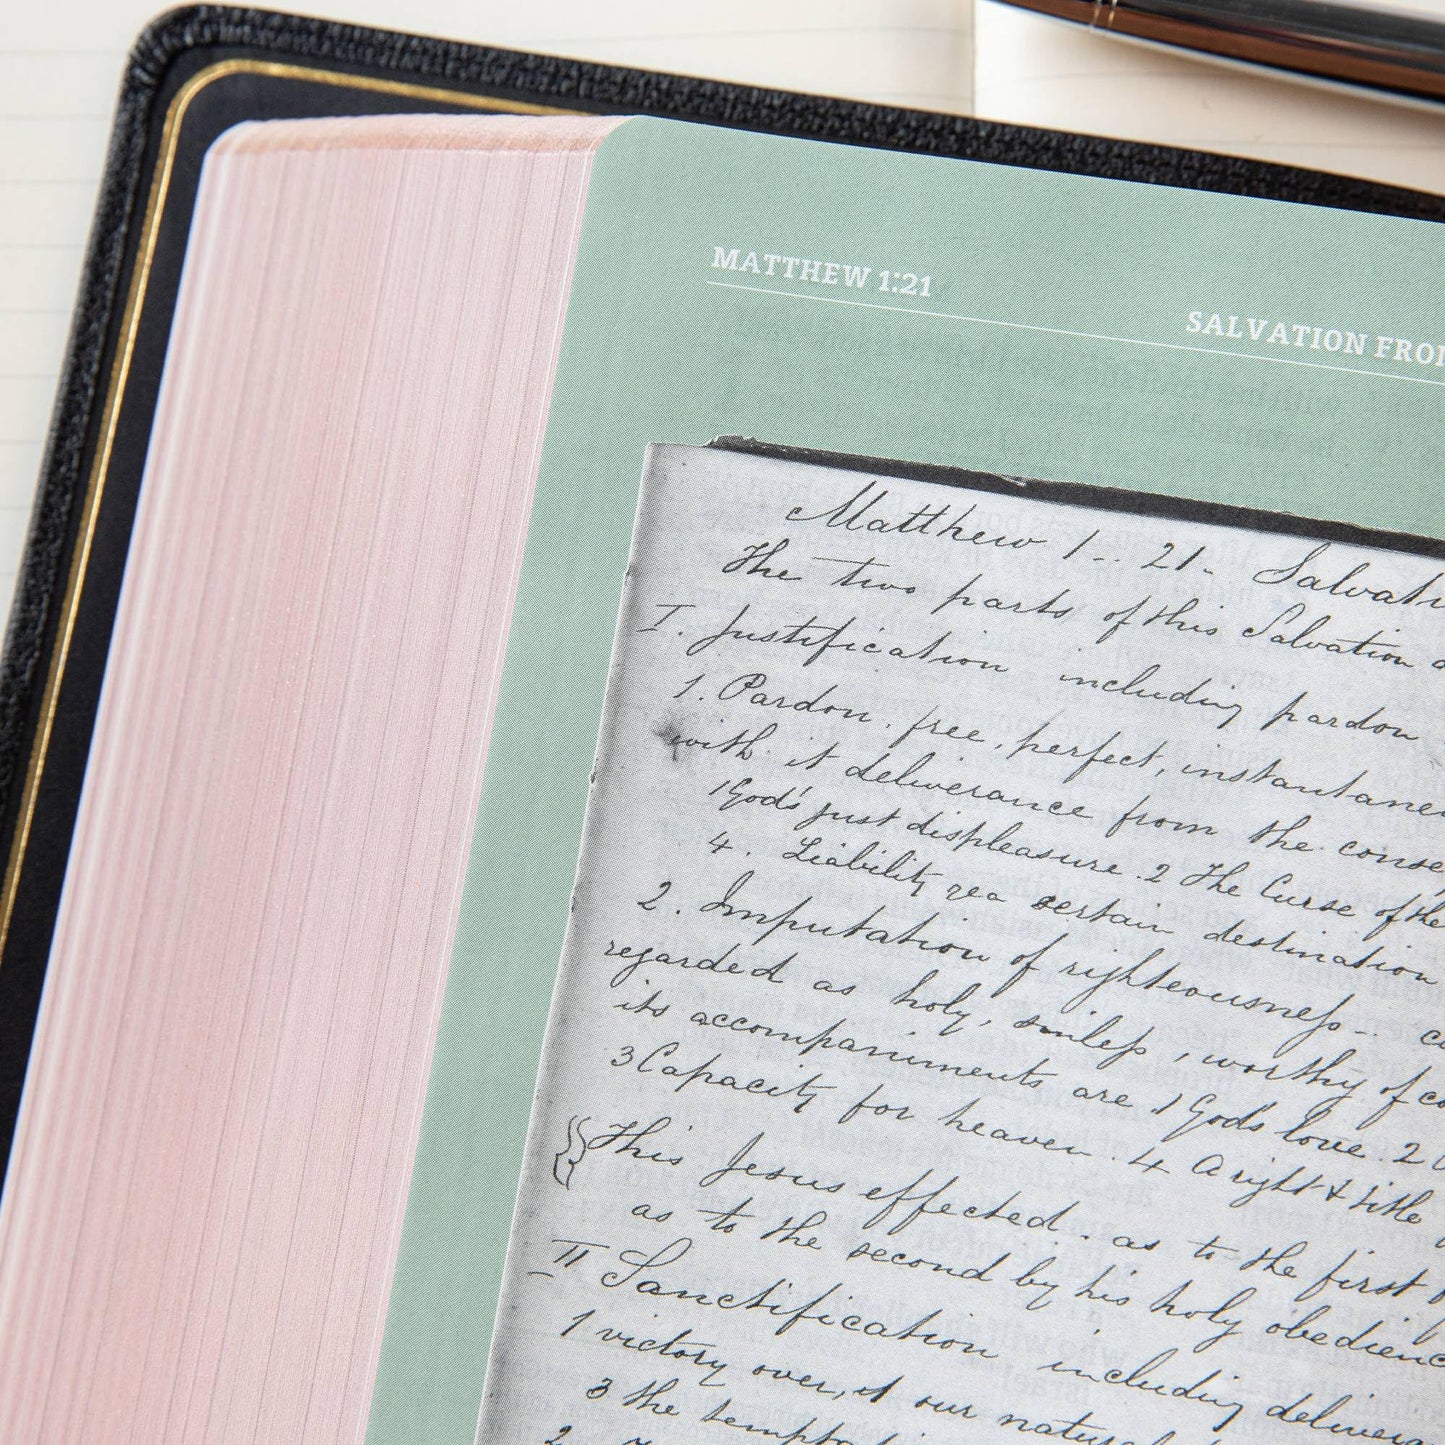 MATTHEW 1:21
SALVATION FRO
Matthew 1 - 21 - Salvati
The two parts of this Salvation
I. Justification including pardon
1. Pardon. free, perfect, instantane
with it deliverance from the conse
1 God's just displeasure. 2 The Curse of the
4. Liability certain destination
2. Imputation of righteousness --
regarded as holy, sinless, worthy of co
its accompaniments are 1 God's love. 2
3 Capacity for heaven. 4 A right & title
This Jesus effected. as to the first
as to the second by his holy obedienc
II Sanctification including delivera
1 victory over, our natu
3 the tempt
2